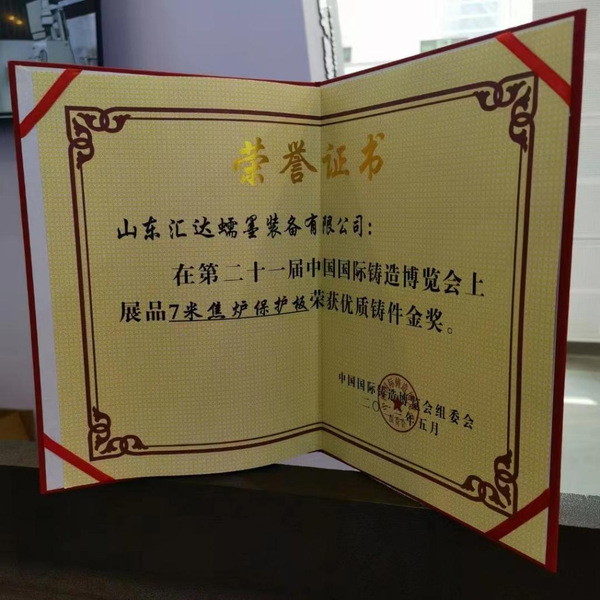 荣誉证书
山东汇达蠕墨装备有限公司：
在第二十一届中国国际铸造博览会上
展品7米焦炉保护板荣获优质铸件金奖。
中国国际铸造博览会组委会
二〇二 年五月